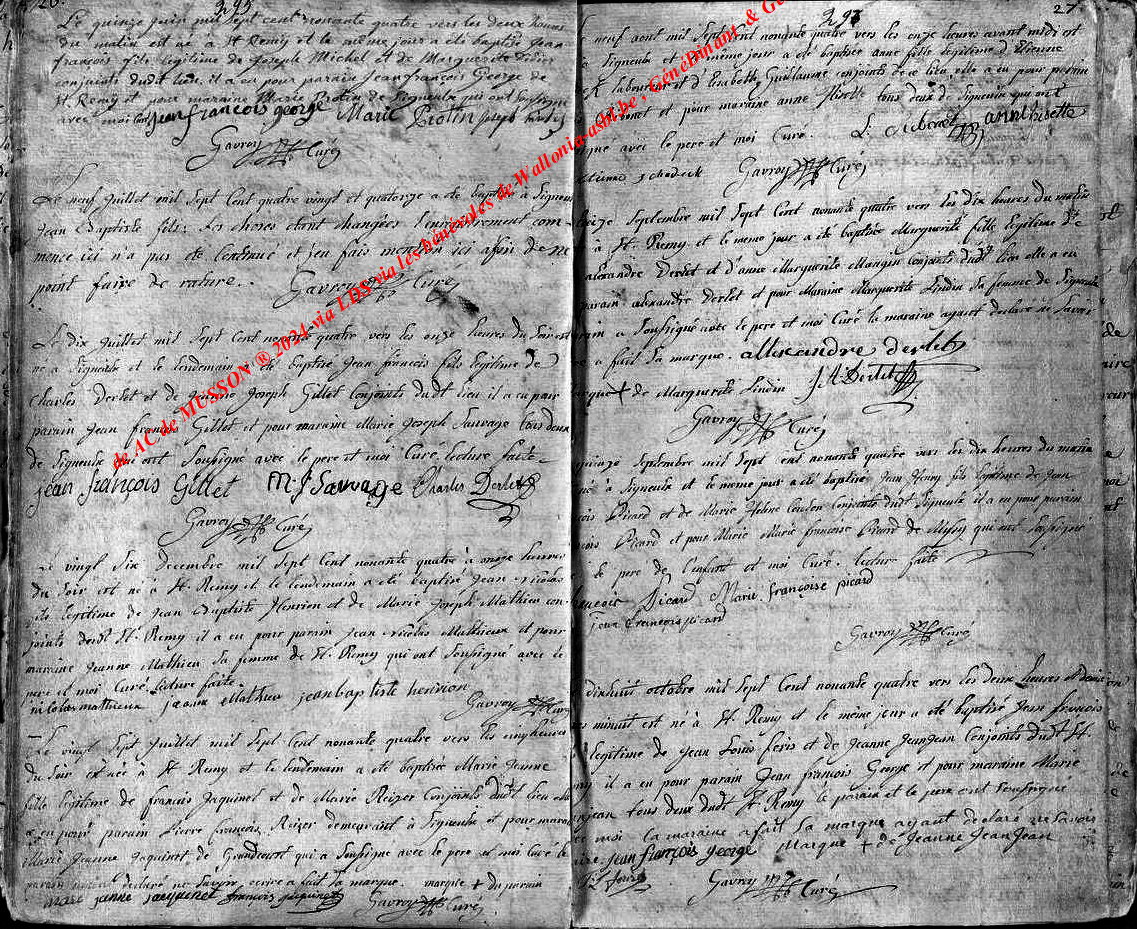 295
Le quinze juin mil sept cent nonante quatre vers les deux heures
du matin est né à St Remy et le même jour a été baptisé Jean
françois fils legitime de Joseph Michel et de Marguerite
conjoints dudt lieu. il a eu pour parain Jean françois George de
St Remy et pour maraine Marie Protin de Signeulx qui ont soussigné
avec moi Curé jean francois george Marie Protin joseph
Gavroy Curé
Le neuf Juillet mil Sept Cent quatre vingt et quatorze a été baptisé à Signeulx
Jean Baptiste fils. Les choses etant changées l'enregistrement com-
mencé ici n'a pas été continué et j'en fais mention ici afin de ne
point faire de rature.. Gavroy Curé
Le dix Juillet mil Sept Cent nonante quatre vers les onze heures du Soir est
né a Signeulx et le lendemain a été baptisé Jean francois fils legitime de
Charles Derlet et de Jeanne Joseph Gillet Conjoints dudt lieu il a eu pour
parain Jean francois Gillet et pour maraine Marie Joseph Sauvage tous deux
de Signeulx qui ont Soussigné avec le pere et moi Curé lecture faite
jean françois Gillet M J Sauvage Charles Derlet
Gavroy Curé
Le vingt Six decembre mil Sept Cent nonante quatre à onze heures
du Soir est né a St Remy et le lendemain a été baptisé Jean Nicolas
fils legitime de Jean Baptiste Henrion et de Marie Joseph Mathieu con-
joints dudt St. Remy il a eu pour parain Jean Nicolas Mathieux et pour
maraine Jeanne Mathieu Sa femme de St. Remy qui ont Soussigné avec le
pere et moi Curé lecture faite
nicolas mathieux jeanne Mathieu jean baptiste henrion
Gavroy Curé
Le vingt Sept Juillet mil Sept Cent nonante quatre vers les onze heures
du Soir est née à St Remy et le lendemain a été baptisée Marie Jeanne
fille legitime de francois Jaquinet et de Marie Reizer Conjoints dudt lieu elle
a eu pour parain Pierre francois Reizer demeurant à Signeulx et pour maraine
Marie Jeanne Jaquinet de Grandcourt qui a Soussigné avec le pere et moi Curé le
parain ayant declaré ne Savoir ecrire a fait Sa marque. marque + du parain
marie janne jacquinet françois jaquinet Gavroy Curé
297
27
neuf aout mil Sept Cent nonante quatre vers les onze heures avant midi est
à Signeulx et le meme jour a été baptisée anne fille legitime d'Etienne
et d'Elisabeth Guillaume conjoints de ce lieu elle a eu pour parain
et pour maraine anne Hisette tous deux de Signeulx qui ont
signé avec le pere et moi Curé. L. anne hisette
etienne Gavroy Curé
Septembre mil Sept Cent nonante quatre vers les Dix heures du matin
à St. Remy et le meme jour a été baptisée Marguerite fille legitime de
alexandre Derlet et d'anne Marguerite Mangin Conjoints dudt lieu elle a eu
parain alexandre Derlet et pour Maraine Marguerite Lindin Sa femme de Signeulx
parain a Soussigné avec le pere et moi Curé la maraine ayant declaré ne Savoir
a fait Sa marque. allexandre derlet
marque + de Marguerite Lindin J A Derlet
Gavroy Curé
quinze Septembre mil Sept Cent nonante quatre vers les dix heures du matin
né à Signeulx et le meme jour a été baptisé Jean Henry fils legitime de Jean
Picard et de Marie Helene Conjoints dudt Signeulx il a eu pour parain
Picard et pour Marie Marie francoise Picard de qui ont Soussigné
le pere de l'enfant et moi Curé. lecture faite
Picard Marie françoise picard
jean francois picard
Gavroy Curé
dixhuit octobre mil Sept Cent nonante quatre vers les deux heures
minuit est né à St. Remy et le même jour a été baptisé Jean francois
legitime de Jean Louis feris et de Jeanne Jeanjean Conjoints dudt St.
il a eu pour parain Jean francois George et pour maraine Marie
jean tous deux dudt St. Remy le parain et le pere ont Soussigné
moi la maraine a fait Sa marque ayant declaré ne Savoir
jean françois george Marque + de Jeanne JeanJean
Gavroy Curé
de AC de MUSSON ® 2024 via LDS via les bénévoles de Wallonia-asbl.be, GénéDinant &